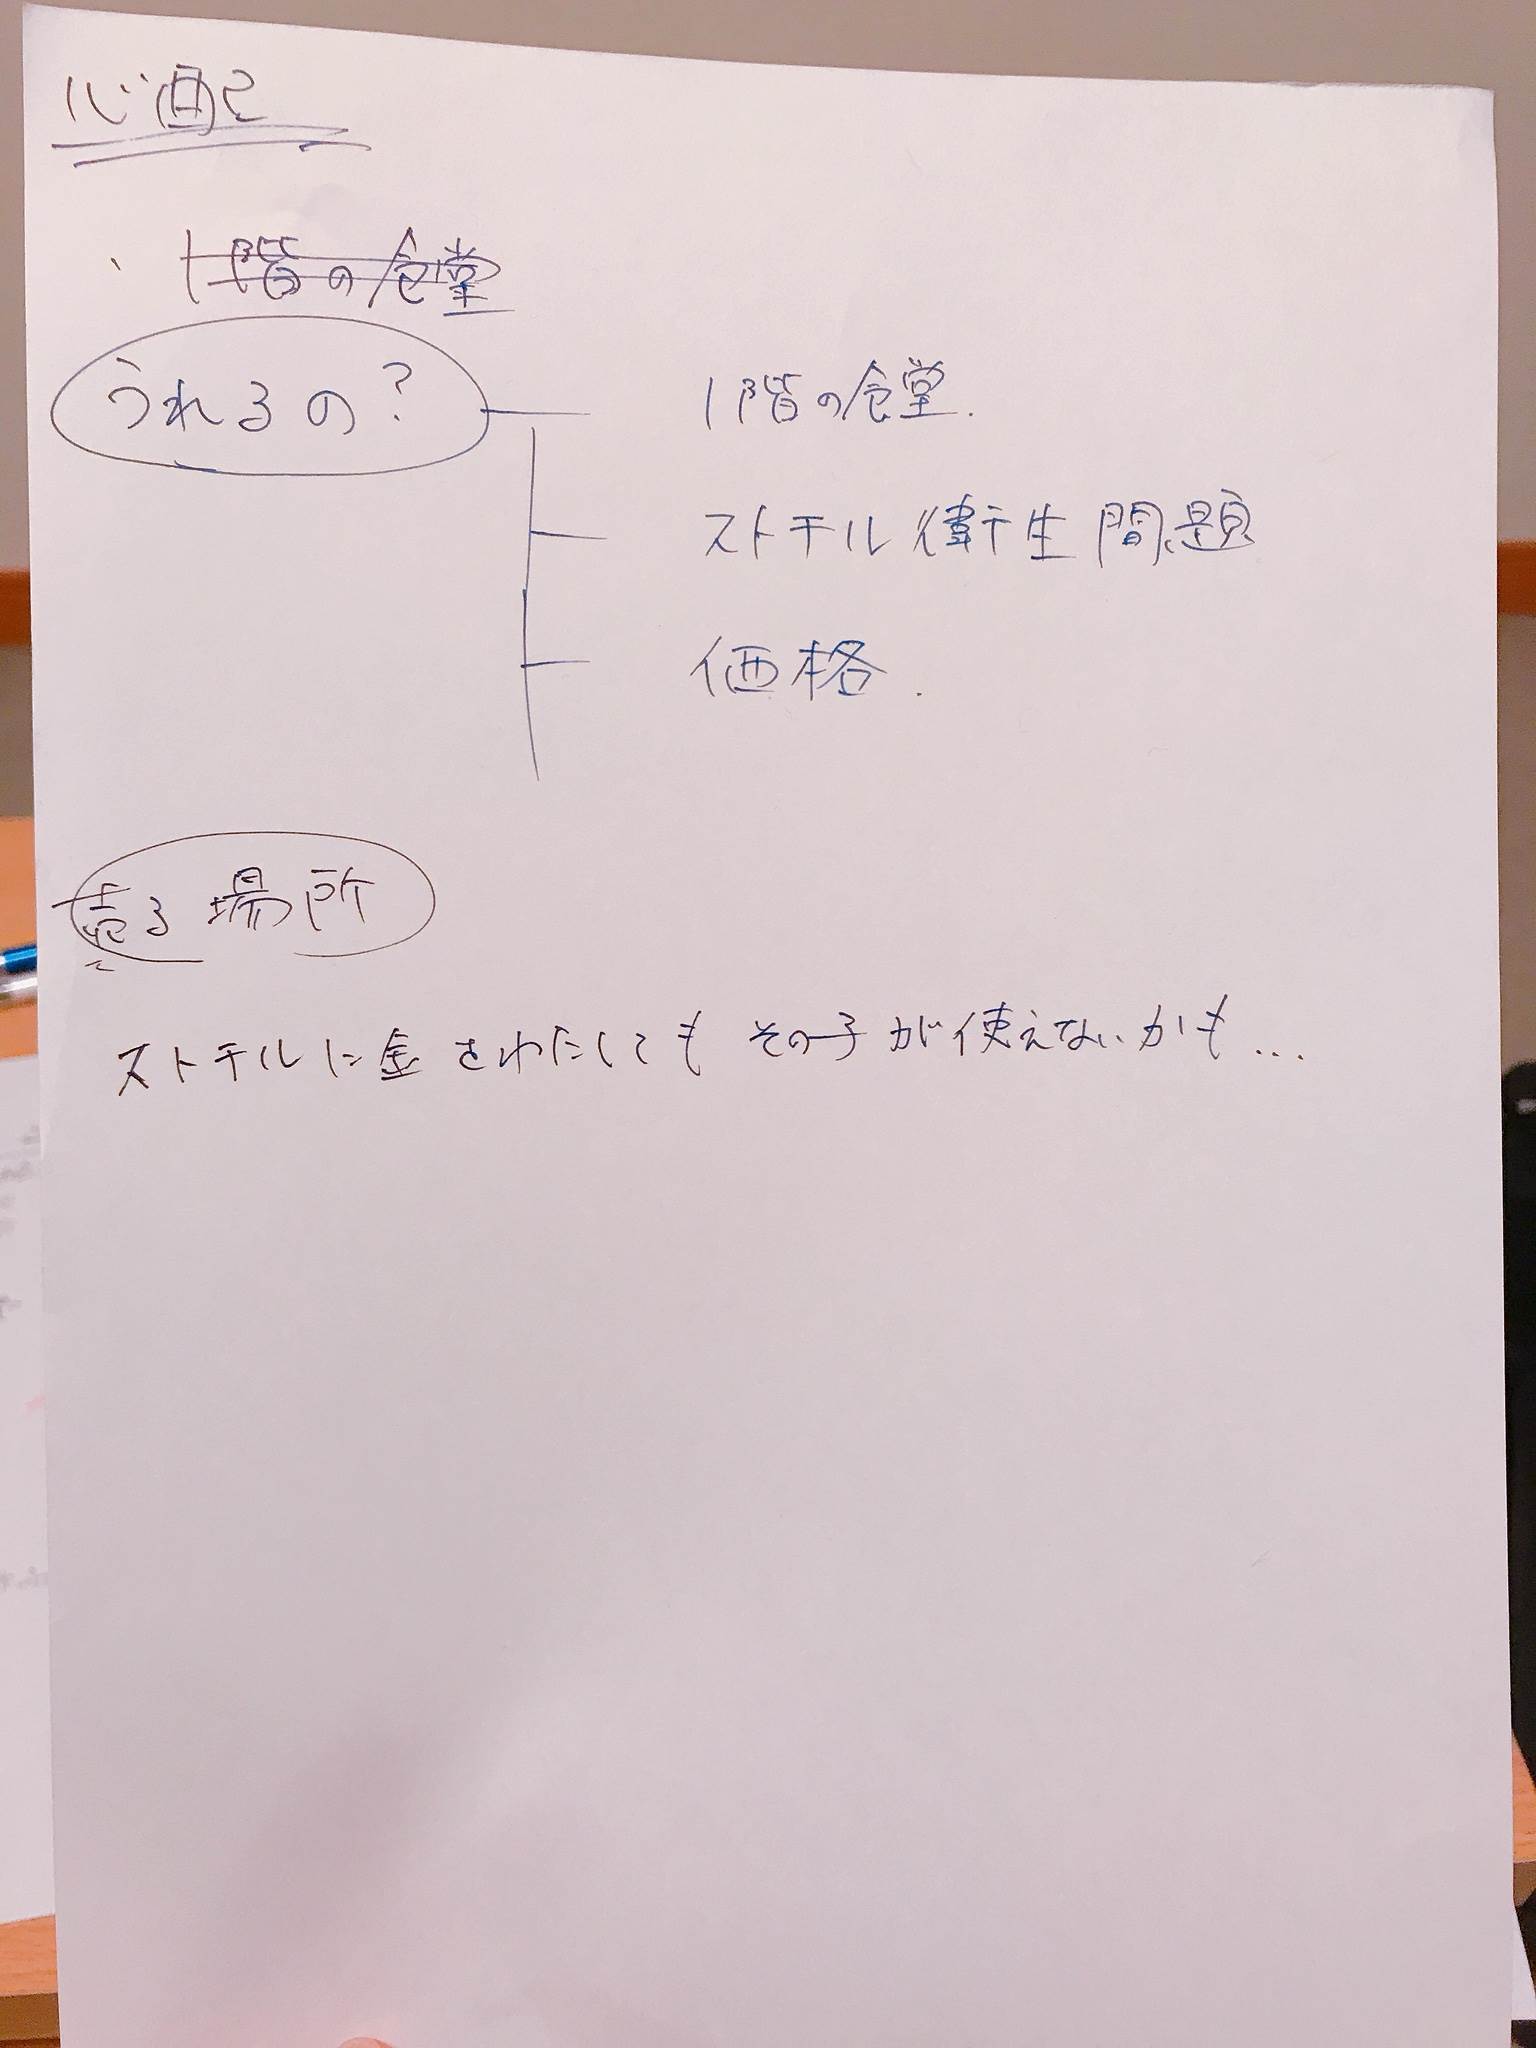 心配
・1階の食堂
うれるの?
1階の食堂.
ストチル衛生問題
価格.
売る場所
ストチルに金をわたしてもその子が使えないかも...